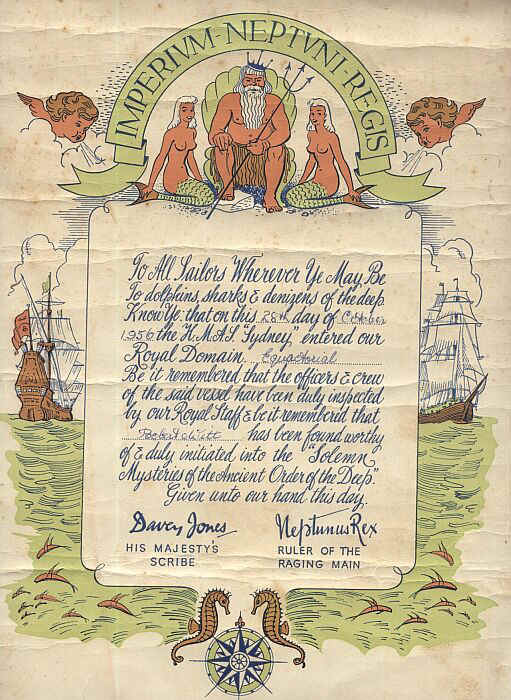 IMPERIVM-NEPTVNI-REGIS
To All Sailors Wherever Ye May Be
To dolphins, sharks & denizens of the deep
Know Ye, that on this 28th day of October
1950 the "H.M.A.S. "Sydney," entered our
Royal Domain. Equatorial
Be it remembered that the officers & crew
of the said vessel have been duly inspected
by our Royal Staff & be it remembered that
Robert has been found worthy
of & duly initiated into the "Solemn
Mysteries of the Ancient Order of the Deep."
Given unto our hand this day.
Davey Jones
Neptunus Rex
HIS MAJESTY'S
SCRIBE
RULER OF THE
RAGING MAIN